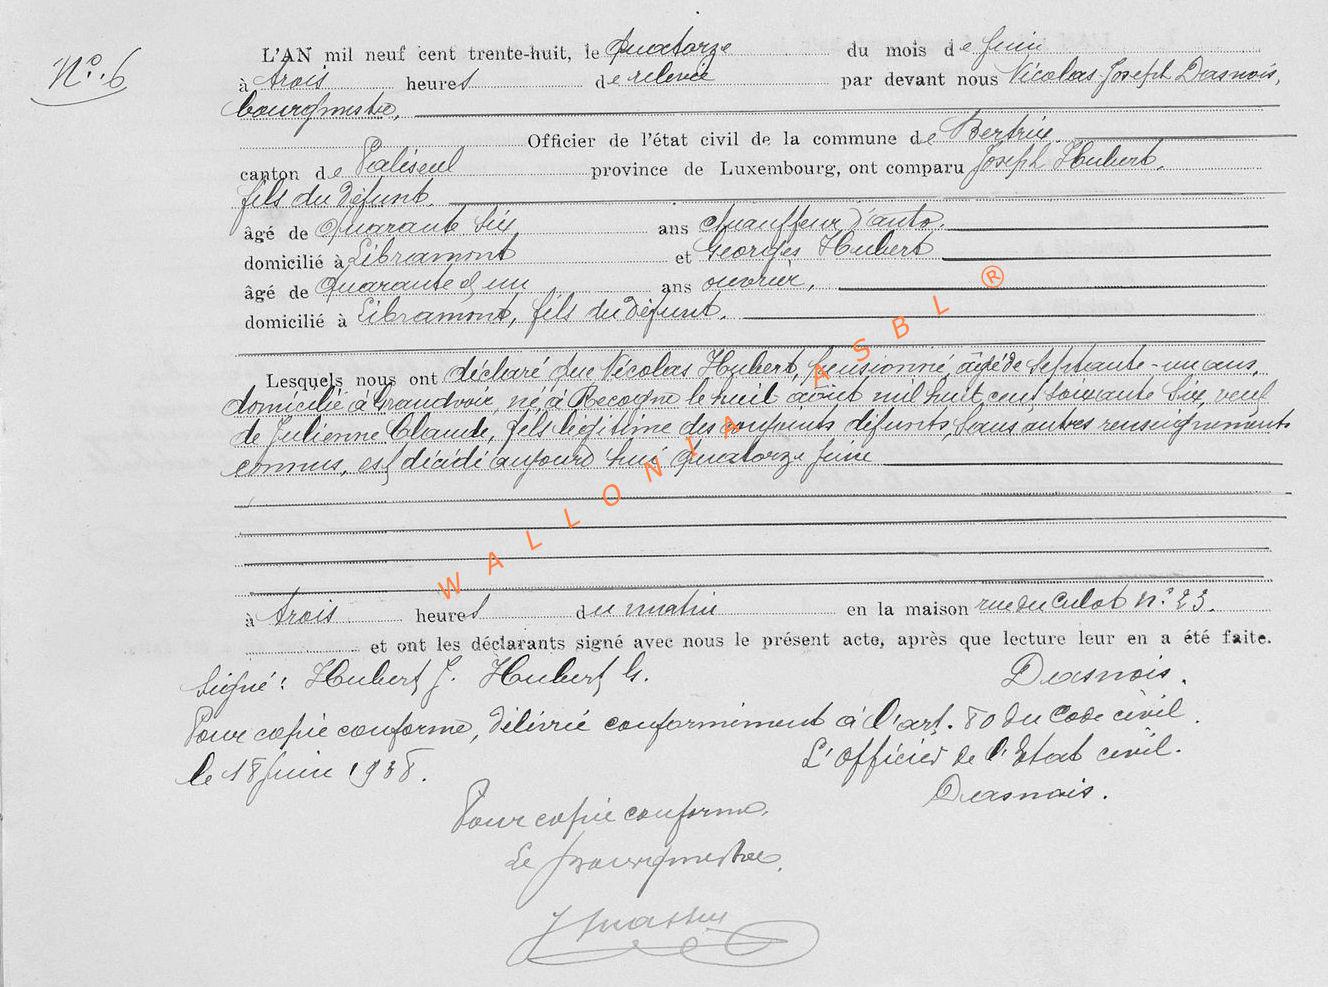 N° 6
L'AN mil neuf cent trente-huit, le Quatorze du mois de Juin
à trois heures de relevée par devant nous Nicolas Joseph Dasnois,
bourgmestre,
Officier de l'état civil de la commune de Bertrix
canton de Paliseul province de Luxembourg, ont comparu Joseph Hubert,
fils du défunt,
âgé de Quarante six ans chauffeur d'auto,
domicilié à Libramont et Georges Hubert
âgé de Quarante et un ans ouvrier,
domicilié à Libramont, fils du défunt,
Lesquels nous ont déclaré que Nicolas Hubert, pensionné, âgé de septante-un ans,
domicilié à Grandvoir, né à Recogne le huit août mil huit cent soixante six, veuf
de Julienne Claude, fils légitime des conjoints défunts, sans autres renseignements
connus, est décédé aujourd'hui Quatorze juin
à trois heures du matin en la maison rue du Culot n° 23.
et ont les déclarants signé avec nous le présent acte, après que lecture leur en a été faite.
Signé : Hubert J. Hubert G. Dasnois.
Pour copie conforme, délivrée conformément à l'art. 80 du Code civil.
le 18 Juin 1938. L'Officier de l'Etat civil.
Dasnois.
Pour copie conforme,
Le Bourgmestre,
WALLONIA ASBL ®